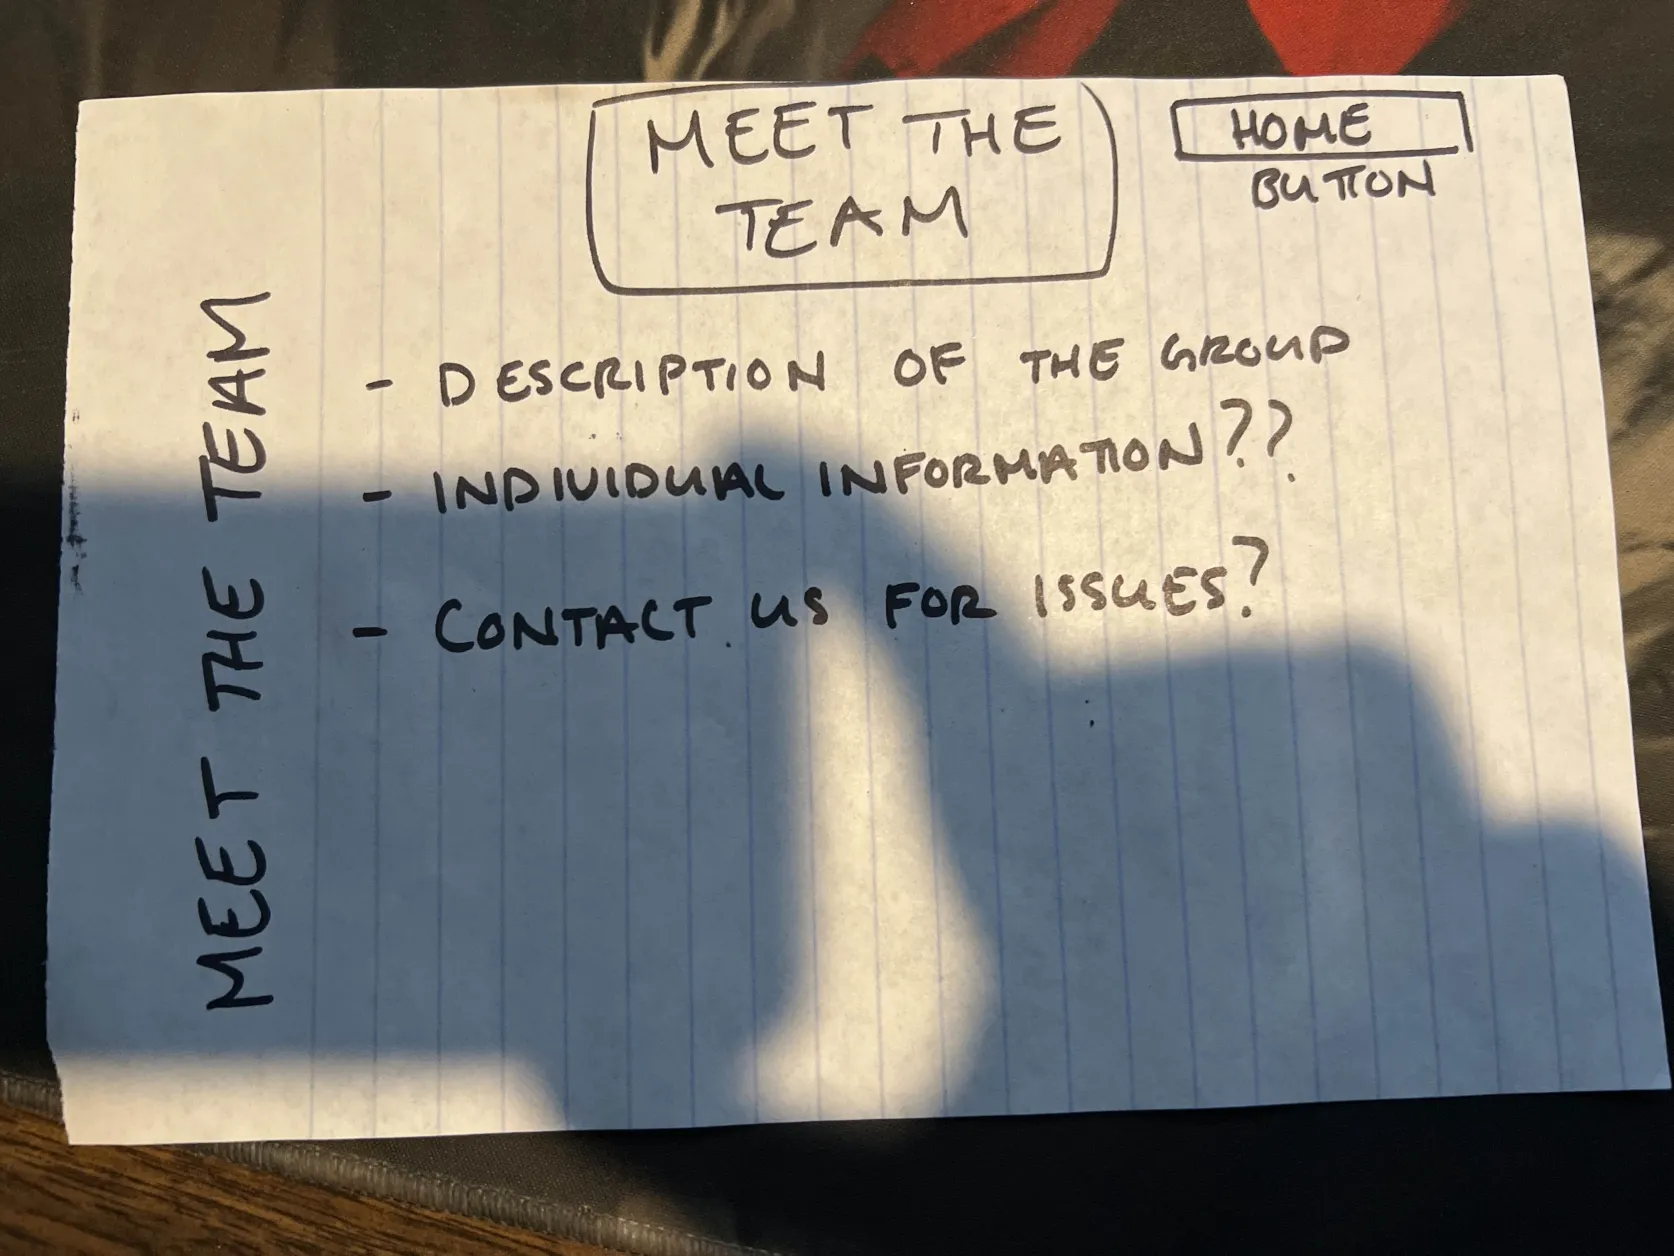 MEET THE
TEAM
HOME
BUTTON
MEET THE TEAM
- DESCRIPTION OF THE GROUP
- INDIVIDUAL INFORMATION??
- CONTACT US FOR ISSUES?